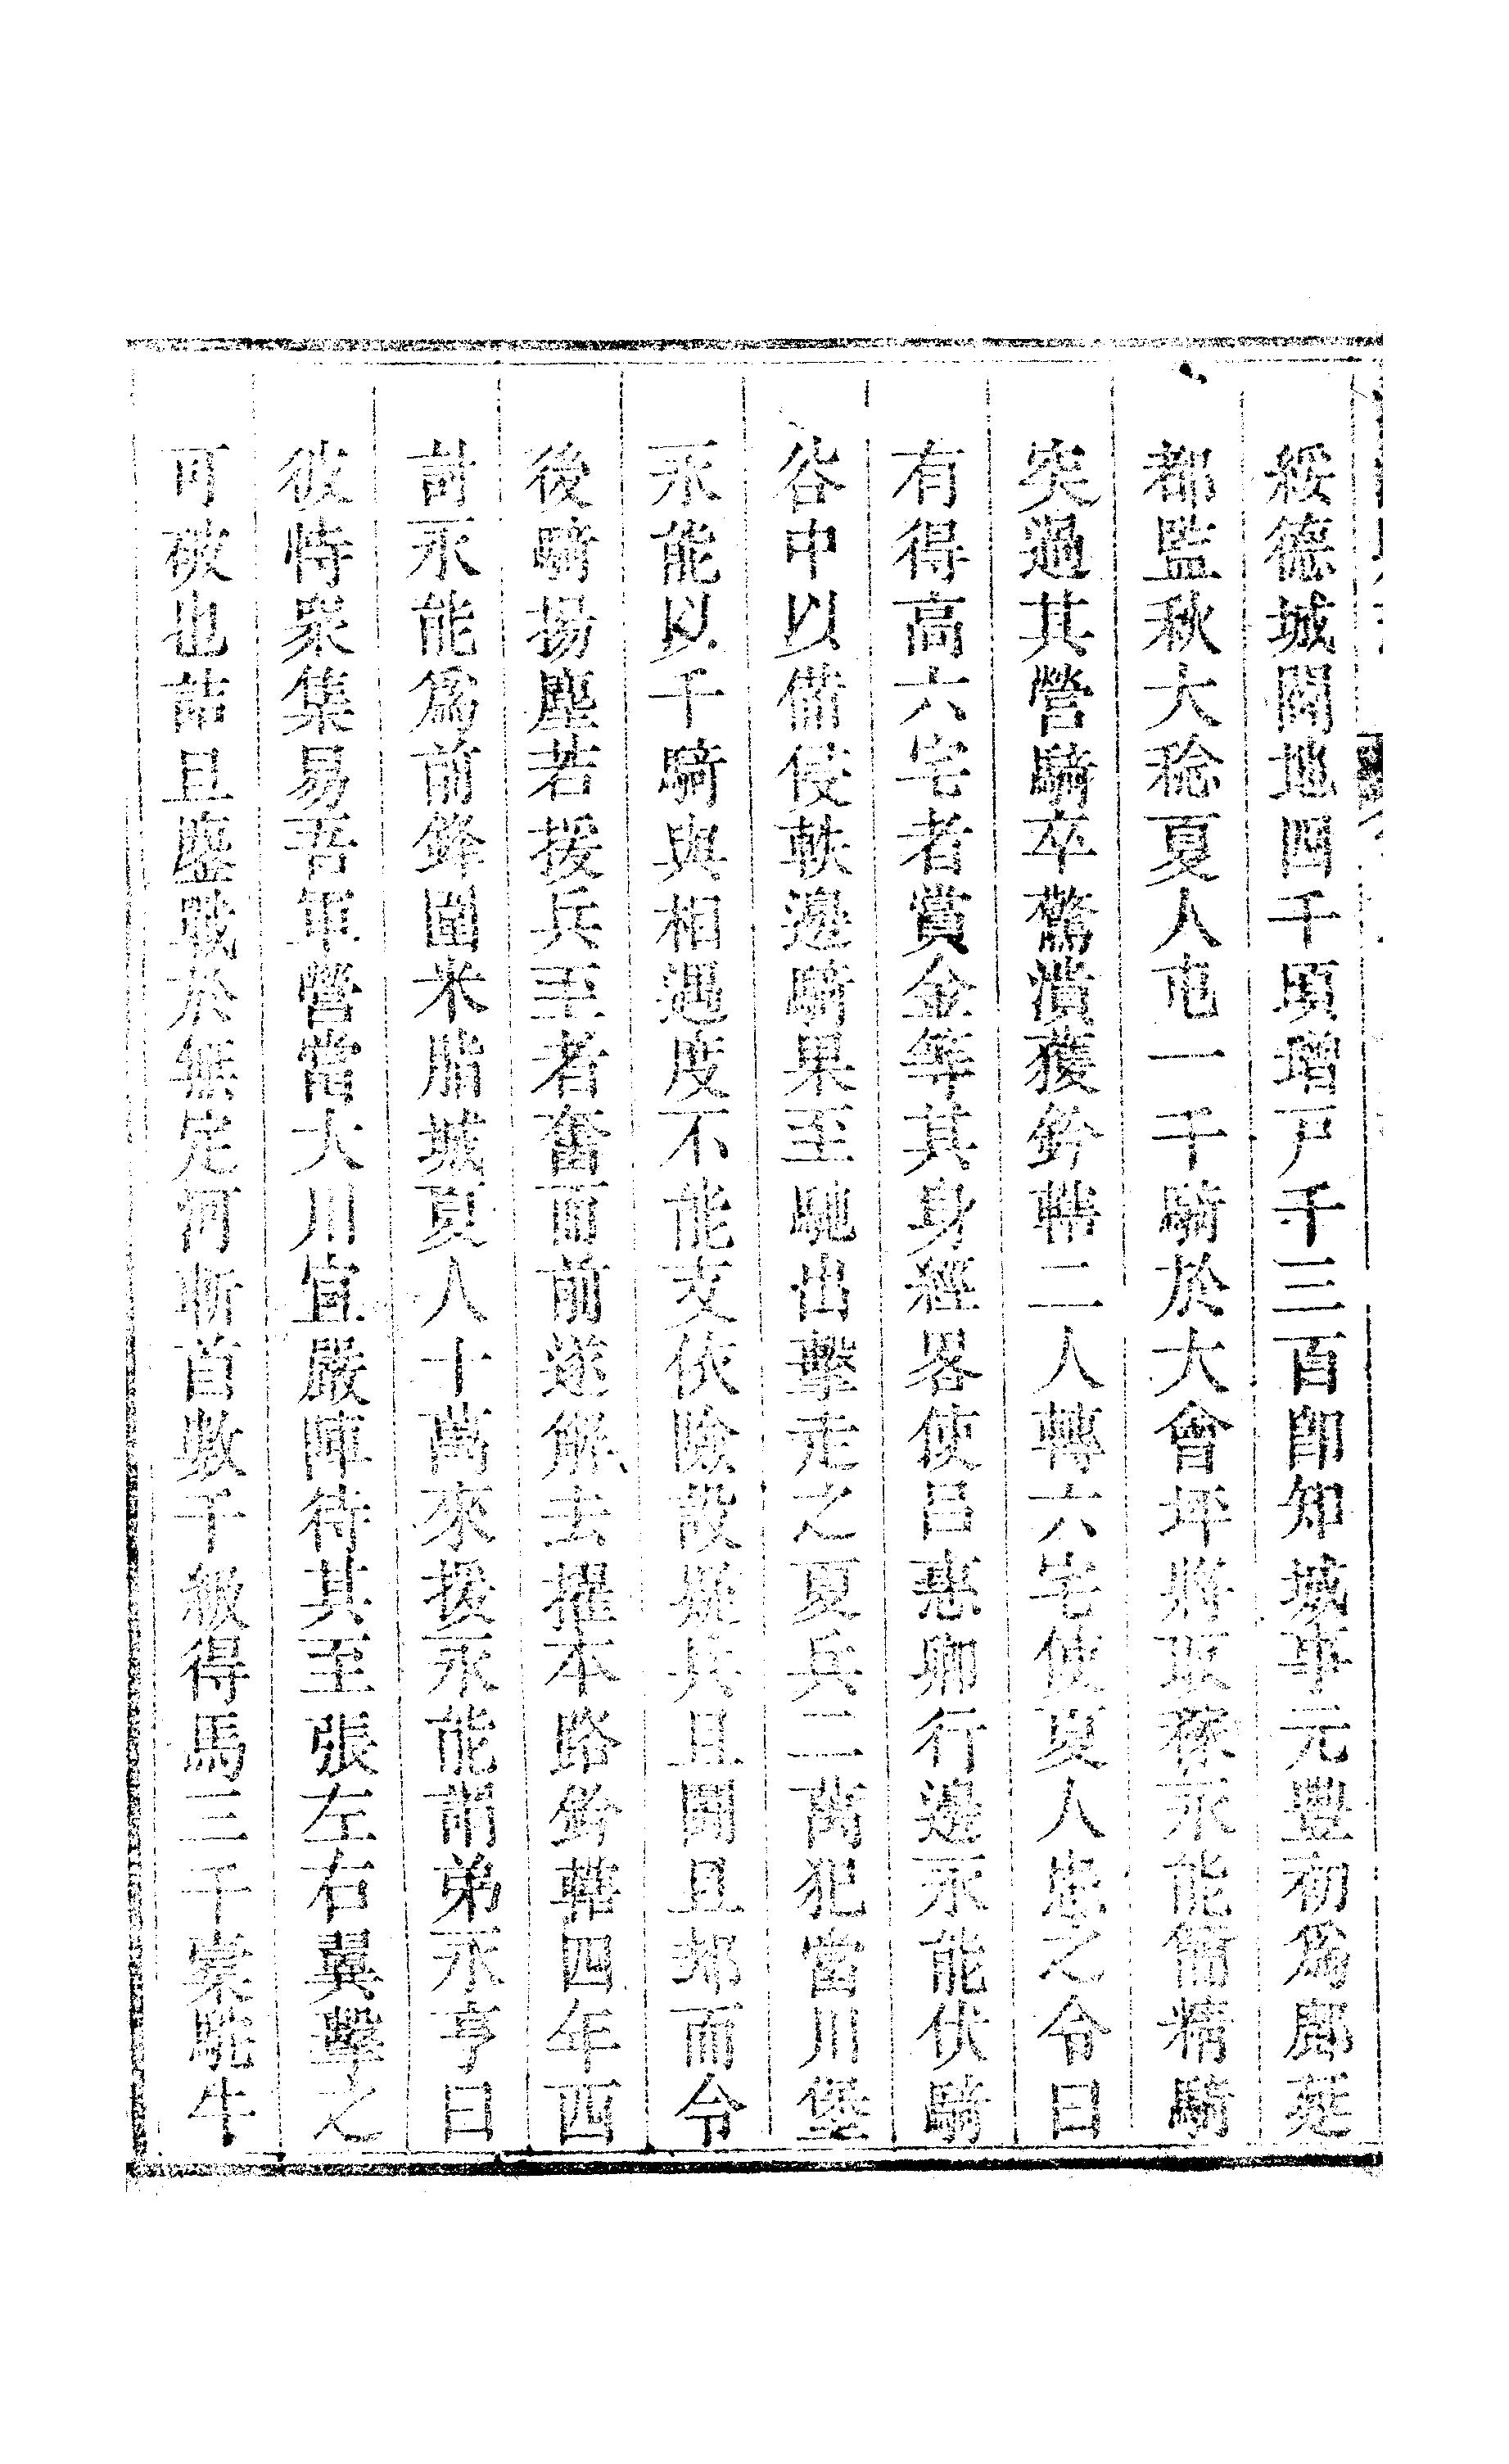 綏德城闢地四千頃增戸千三百卽知城事元豐初爲鄜延
都監秋大稔夏人屯一千騎於大會坪將取稼永能簡精騎
突過其營騎卒驚潰獲鈐轄二人轉六宅使夏人患之令曰
有得高六宅者賞金等其身經畧使呂惠卿行邊永能伏騎
谷中以備侵軼邊騎果至馳出擊走之夏兵二萬犯當川堡
永能以千騎與相遇度不能支依險設疑兵且鬭且却而令
後騎揚塵若援兵至者奮而前遂解去擢本路鈐轄四年西
討永能爲前鋒圍米脂城夏人十萬來援永能謂弟永亨曰
彼恃衆集易吾軍營當大川宜嚴陣待其至張左右翼擊之
可破也詰旦鏖戰於無定河斬首數千級得馬三千橐駝牛